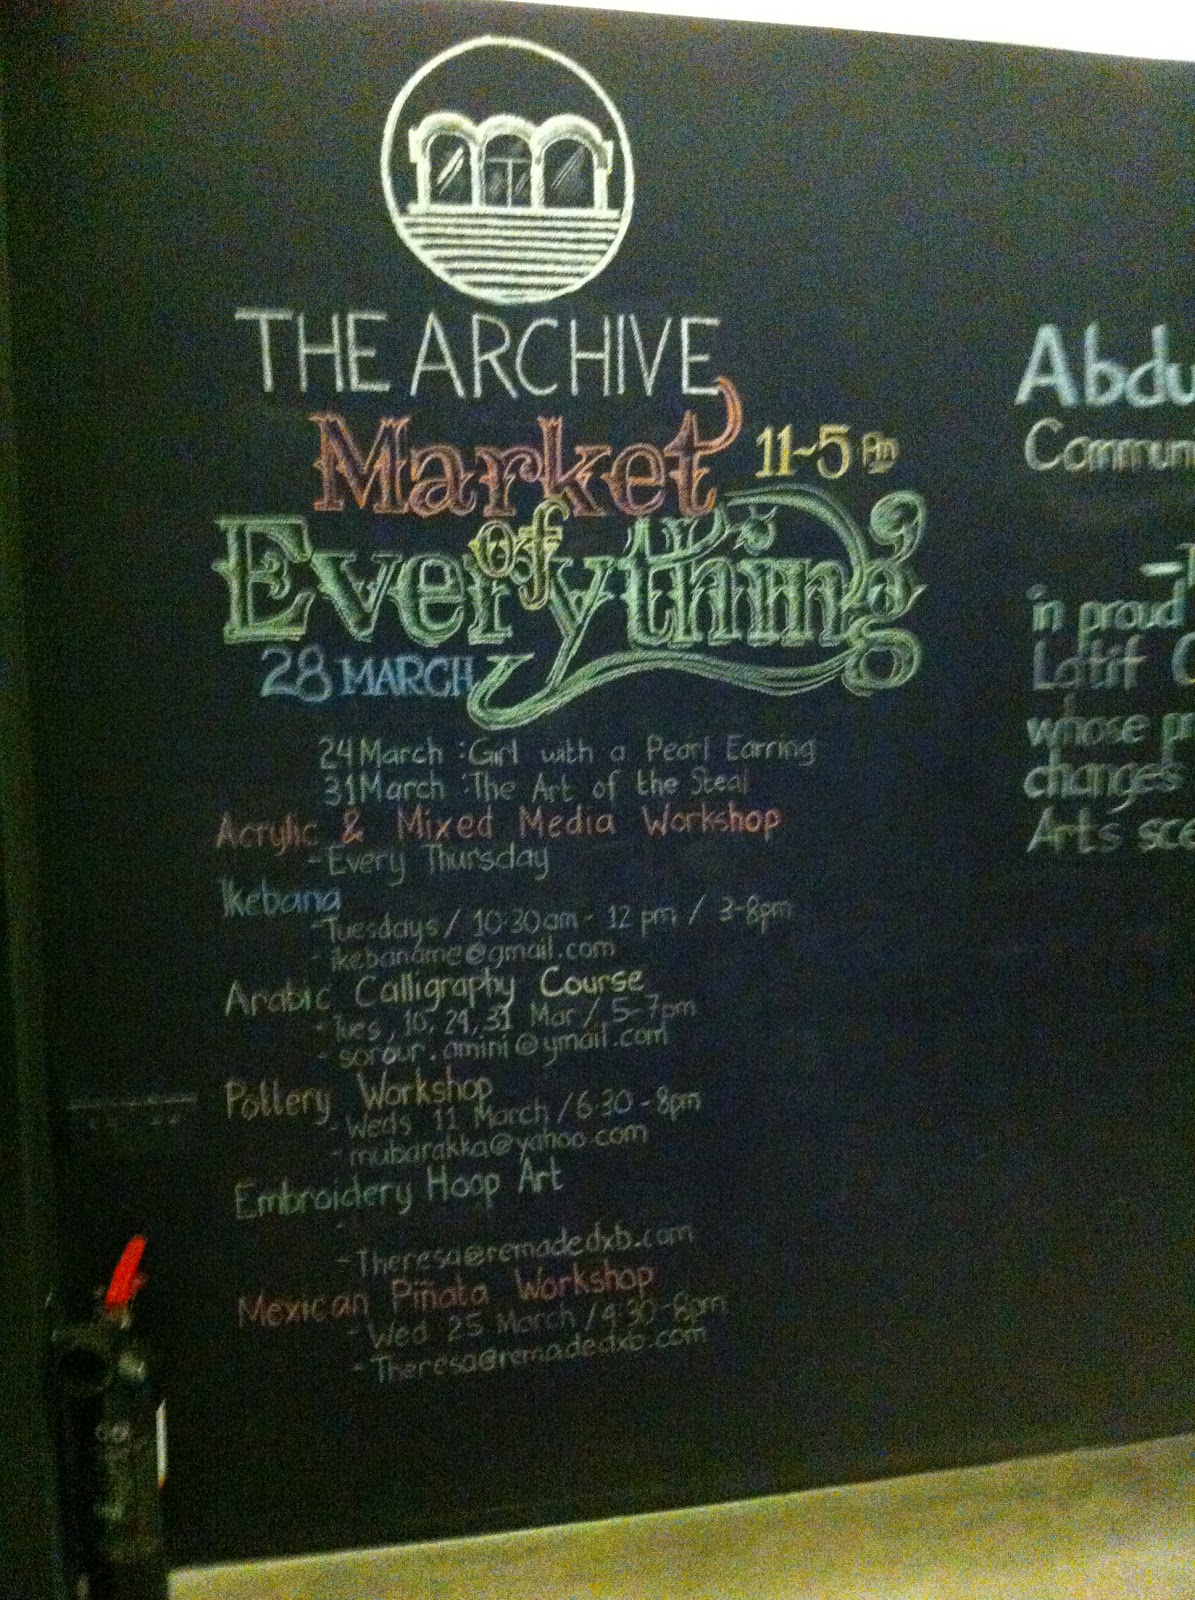 THE ARCHIVE
Market 11-5 Pm
of
Everything
28 MARCH
24 March : Girl with a Pearl Earring
31 March : The Art of the Steal
Acrylic & Mixed Media Workshop
- Every Thursday
Ikebana
- Tuesdays / 10:30am - 12 pm / 3-8pm
- ikebaname@gmail.com
Arabic Calligraphy Course
- Tues, 10, 24, 31 Mar / 5-7pm
- sorour.amini@ymail.com
Pottery Workshop
- Weds 11 March / 6:30 - 8pm
- mubarakka@yahoo.com
Embroidery Hoop Art
-
- Theresa@remadedxb.com
Mexican Piñata Workshop
- Wed 25 March / 4:30-8pm
- Theresa@remadedxb.com
Abdu
Commun
in proud
Latif C
whose pr
changes
Arts sce